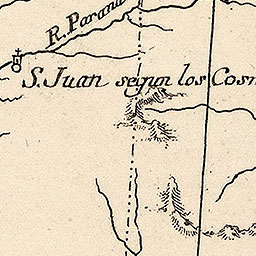 R. Parana
S. Juan segun los Cosm